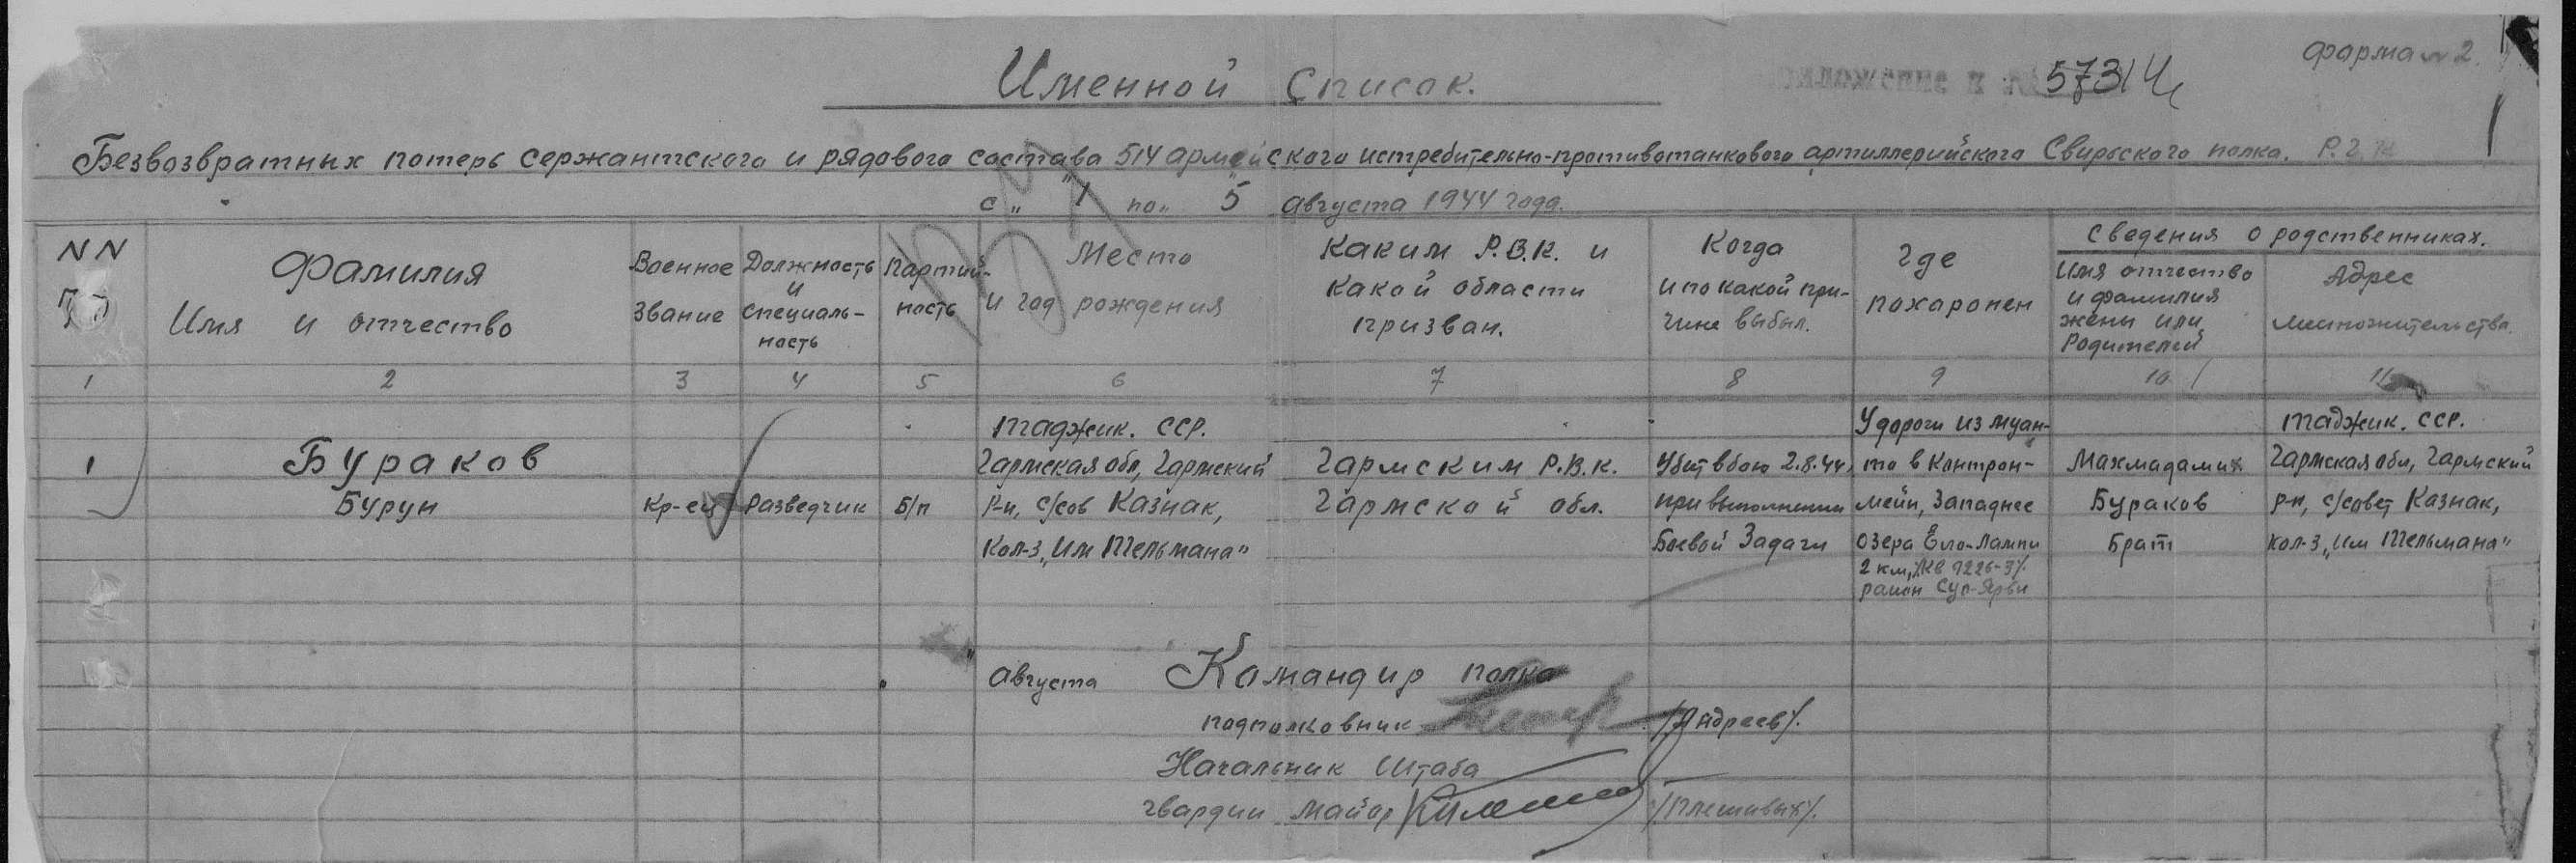 форма № 2
5731 Ч
Именной список.
Безвозвратных потерь сержантского и рядового состава 514 армейского истребительно-противотанкового артиллерийского Свирьского полка. Р.Г.К
с „ 1 по „ 5 августа 1944 года.
NN
Фамилия
Имя и отчество
Военное
звание
Должность
и
специаль-
ность
Партий-
ность
Место
и год рождения
Каким Р.В.К. и
какой области
призван.
Когда
и по какой при-
чине выбыл.
Где
похоронен
Сведения о родственниках.
Имя отчество
и фамилия
жены или
Родителей
Адрес
местожительства.
1 2 3 4 5 6 7 8 9 10 11
1
Бураков
Бурун
Кр-ец
Разведчик
Б/п
Таджик. ССР.
Гармская обл, Гармский
р-н, с/сов Казнак,
Кол-з „Им Тельмана"
Гармским Р.В.К.
Гармской обл.
Убит в бою 2.8.44,
при выполнении
Боевой Задачи
У дороги из Муан-
то в Контрон-
мейн, Западнее
озера Ело-Лампи
2 км,
район Суо-Ярви
Махмадамин
Бураков
Брат
Таджик. ССР.
Гармская обл, Гармский
р-н, с/совет Казнак,
кол-з „Им Тельмана"
" августа Командир полка
подполковник /Андреев/.
Начальник Штаба
гвардии майор /Плешивых/.